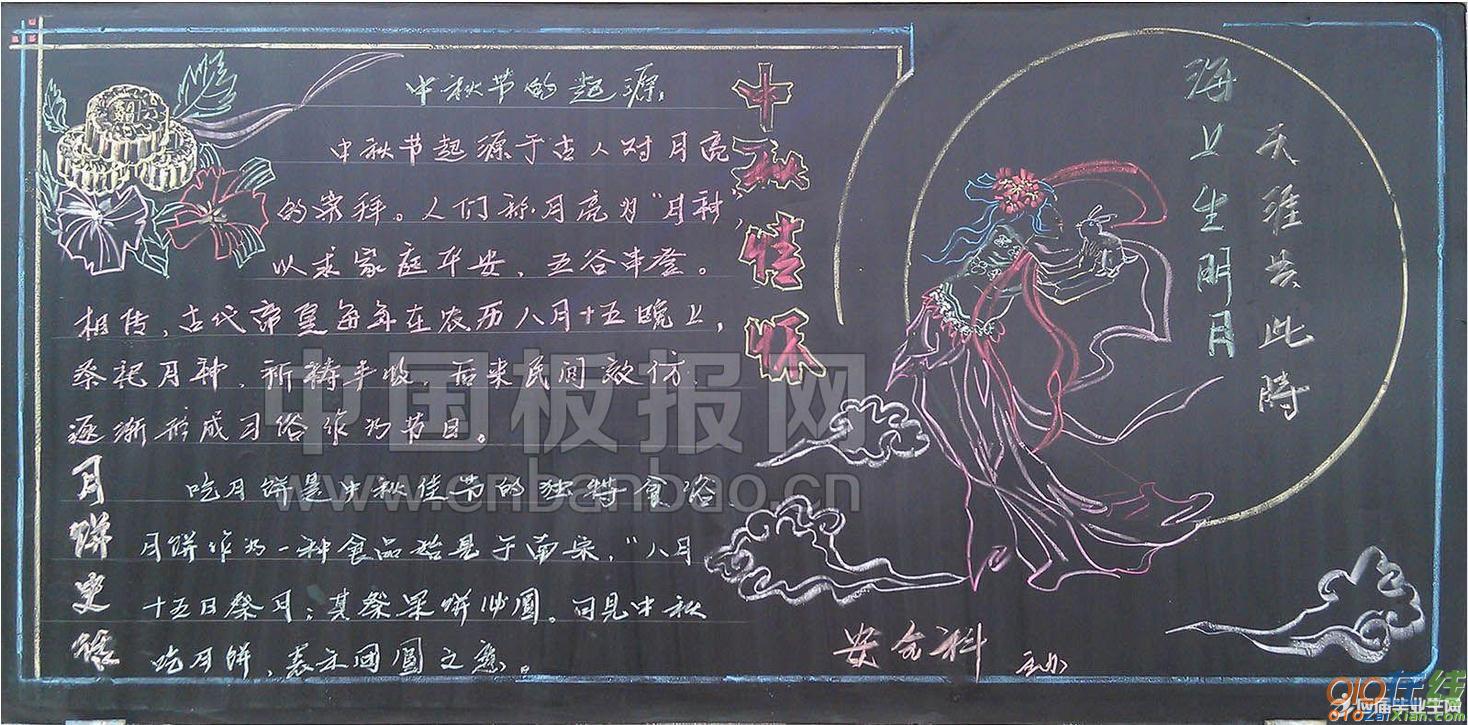 中秋节的起源
中秋节起源于古人对月亮
的崇拜。人们称月亮为“月神”,
以求家庭平安、五谷丰登。
相传,古代帝皇每年在农历八月十五晚上,
祭祀月神、祈祷丰收,后来民间效仿,
逐渐形成习俗作为节日。
月饼史话
吃月饼是中秋佳节的独特食俗
月饼作为一种食品始是于南宋,“八月
十五日祭月;其祭果饼必圆。可见中秋
吃月饼,表示团圆之意。
中秋佳
海上生明月
天涯共此時
安全科 主办
中国板报网
www.cnbanbao.cn
应届毕业生网